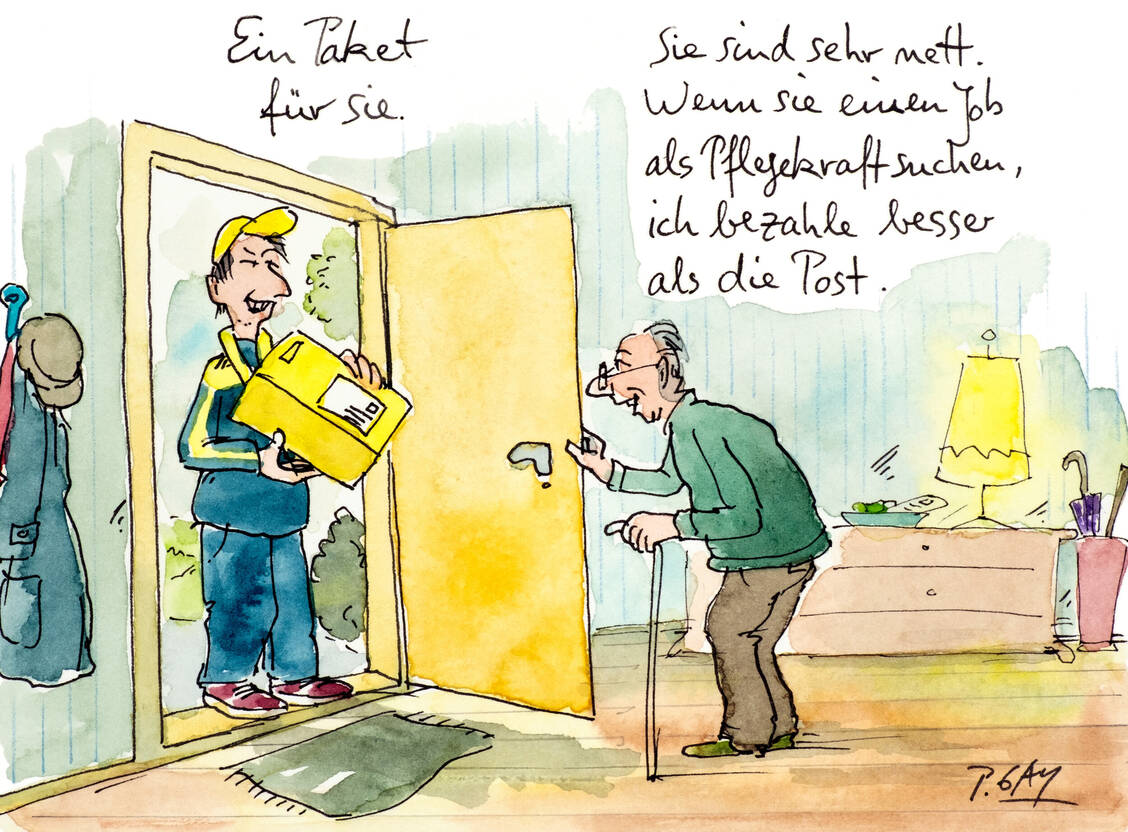 Ein Paket
für sie.
Sie sind sehr nett.
Wenn sie einen Job
als Pflegekraft suchen,
ich bezahle besser
als die Post.
P. GAY